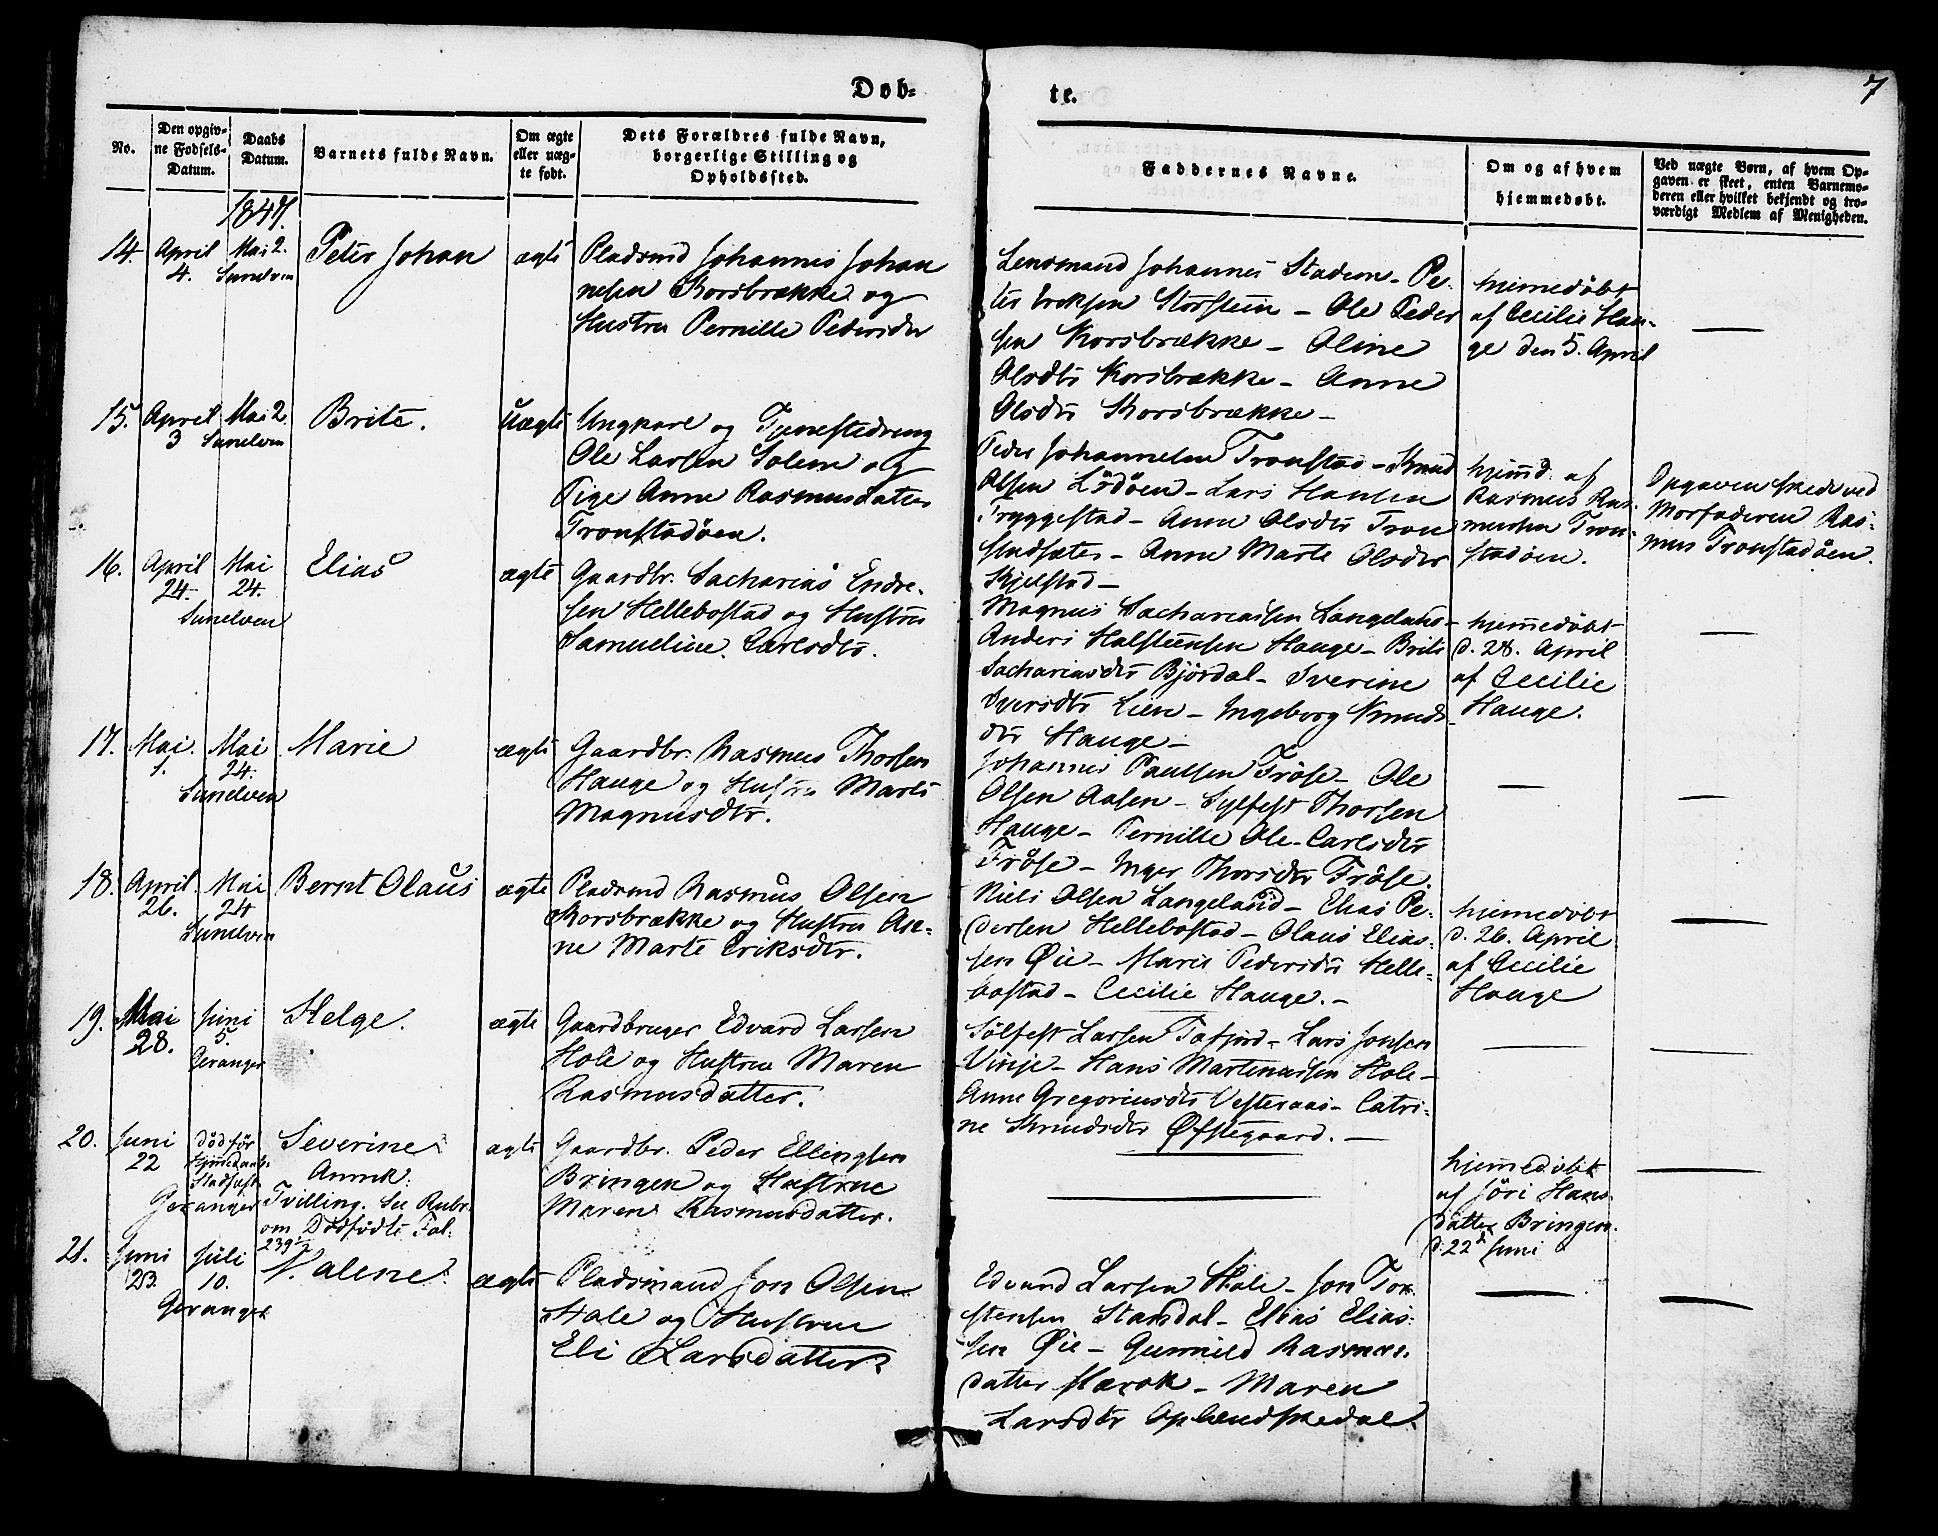 Døb-
te.
7
No.
Den opgiv-
ne Fødsels-
Datum.
Daabs
Datum.
Barnets fulde Navn.
Om ægte
eller uæg-
te født.
Dets Forældres fulde Navn,
borgerlige Stilling og
Opholdssted.
Faddernes Navne.
Om og af hvem
hjemmedøbt.
Ved uægte Børn, af hvem Op-
gaven er skeet, enten Barnemo-
deren eller hvilket bekjendt og tro-
værdigt Medlem af Menigheden.
1847.
14.
April
4.
Mai 2.
Sunelven
Peter Johan
ægte
Pladsmd Johannes Johan
nesen Korsbrække og
Hustru Pernille Pedersdtr
Lensmand Johannes Stadem - Pe-
ter Eriksen Storstein - Ole Peder
sen Korsbrække - Oline
Olsdtr Korsbrække - Anne
Olsdtr Korsbrække -
hjemedøbt
af Cecilie Hau-
ge den 5. April
15.
April
3
Mai 2.
Sunelven
Brite.
Uægte
Ungkarl og Tjenestedreng
Ole Larsen Solem og
Pige Anne Rasmusdatter
Tronstadøen.
Peder Johannesen Tronstad - Knud
Olsen Lødøen - Lars Hansen
Tryggestad - Anne Olsdtr Tron
stadsæter - Anne Marte Olsdtr
Kjelstad -
hjemd. af
Rasmus Ras-
mussen Tron-
stadøen.
Opgaven skede ved
Morfaderen Ras-
mus Tronstadøen.
16.
April
24.
Mai
24.
Sunelven
Elias
ægte
Gaardbr. Sacharias Endre-
sen Hellebostad og Hustru
Samueline Carlsdtr.
Magnus Sachariassen Langeland -
Anders Halsteensen Hauge - Brite
Sachariasdtr Bjørdal - Iverine
Iversdtr Lien - Ingeborg Knuds
dtr Hauge -
hjemedøbt
d. 28. April
af Cecilie
Hauge.
17.
Mai.
1.
Mai
24.
Sunelven
Marie
ægte
Gaardbr. Rasmus Thorsen
Hauge og Hustru Marte
Magnusdtr.
Johannes Paulsen Frøse - Ole
Olsen Aasen - Sylfest Thorsen
Hauge - Pernille Ole-Carlsdtr
Frøse - Inger Thorsdtr Frøse.
18.
April
26.
Mai
24
Sunelven
Bernt Olaus
ægte
Pladsmd Rasmus Olsen
Korsbrække og Hustru An-
ne Marte Eriksdtr.
Niels Olsen Langeland - Elias Pe-
dersen Hellebostad - Olaus Elias-
sen Øie - Marie Pedersdtr Helle-
bostad - Cecilie Hauge. -
hjemedøbt
d. 26. April
af Cecilie
Hauge
19.
Mai
28.
Juni
5.
Geranger
Helge.
ægte
Gaardbruger Edvard Larsen
Hole og Hustrue Maren
Rasmusdatter.
Sølfest Larsen Tafjord - Lars Jonsen
Vinje - Hans Martinussen Hole -
Anne Gregoriusdtr Vesteraas - Catri-
ne Knudsdtr Øfstegaard. -
20.
Juni
22
død før
Hjmedaab.
Stadfæst
Geranger
Severine
Annik:
Tvilling. See Rubr.
om Dødfødte Fol:
239
ægte
Gaardbr. Peder Ellingsen
Bringen og Hustrue
Maren Rasmusdatter.
hjemedøbt
af Jøri Hans-
datter Bringen.
d. 22d Juni
21.
Juni
23.
Juli
10.
Geranger
Valine
ægte
Pladsmand Jon Olsen
Hole og Hustrue
Eli Larsdatter
Edvard Larsen Hole - Jon Tor-
stensen Standal - Elias Elias-
sen Øie - Gunnild Rasmus-
datter Hærok - Maren
Larsdtr Oplændskedal.